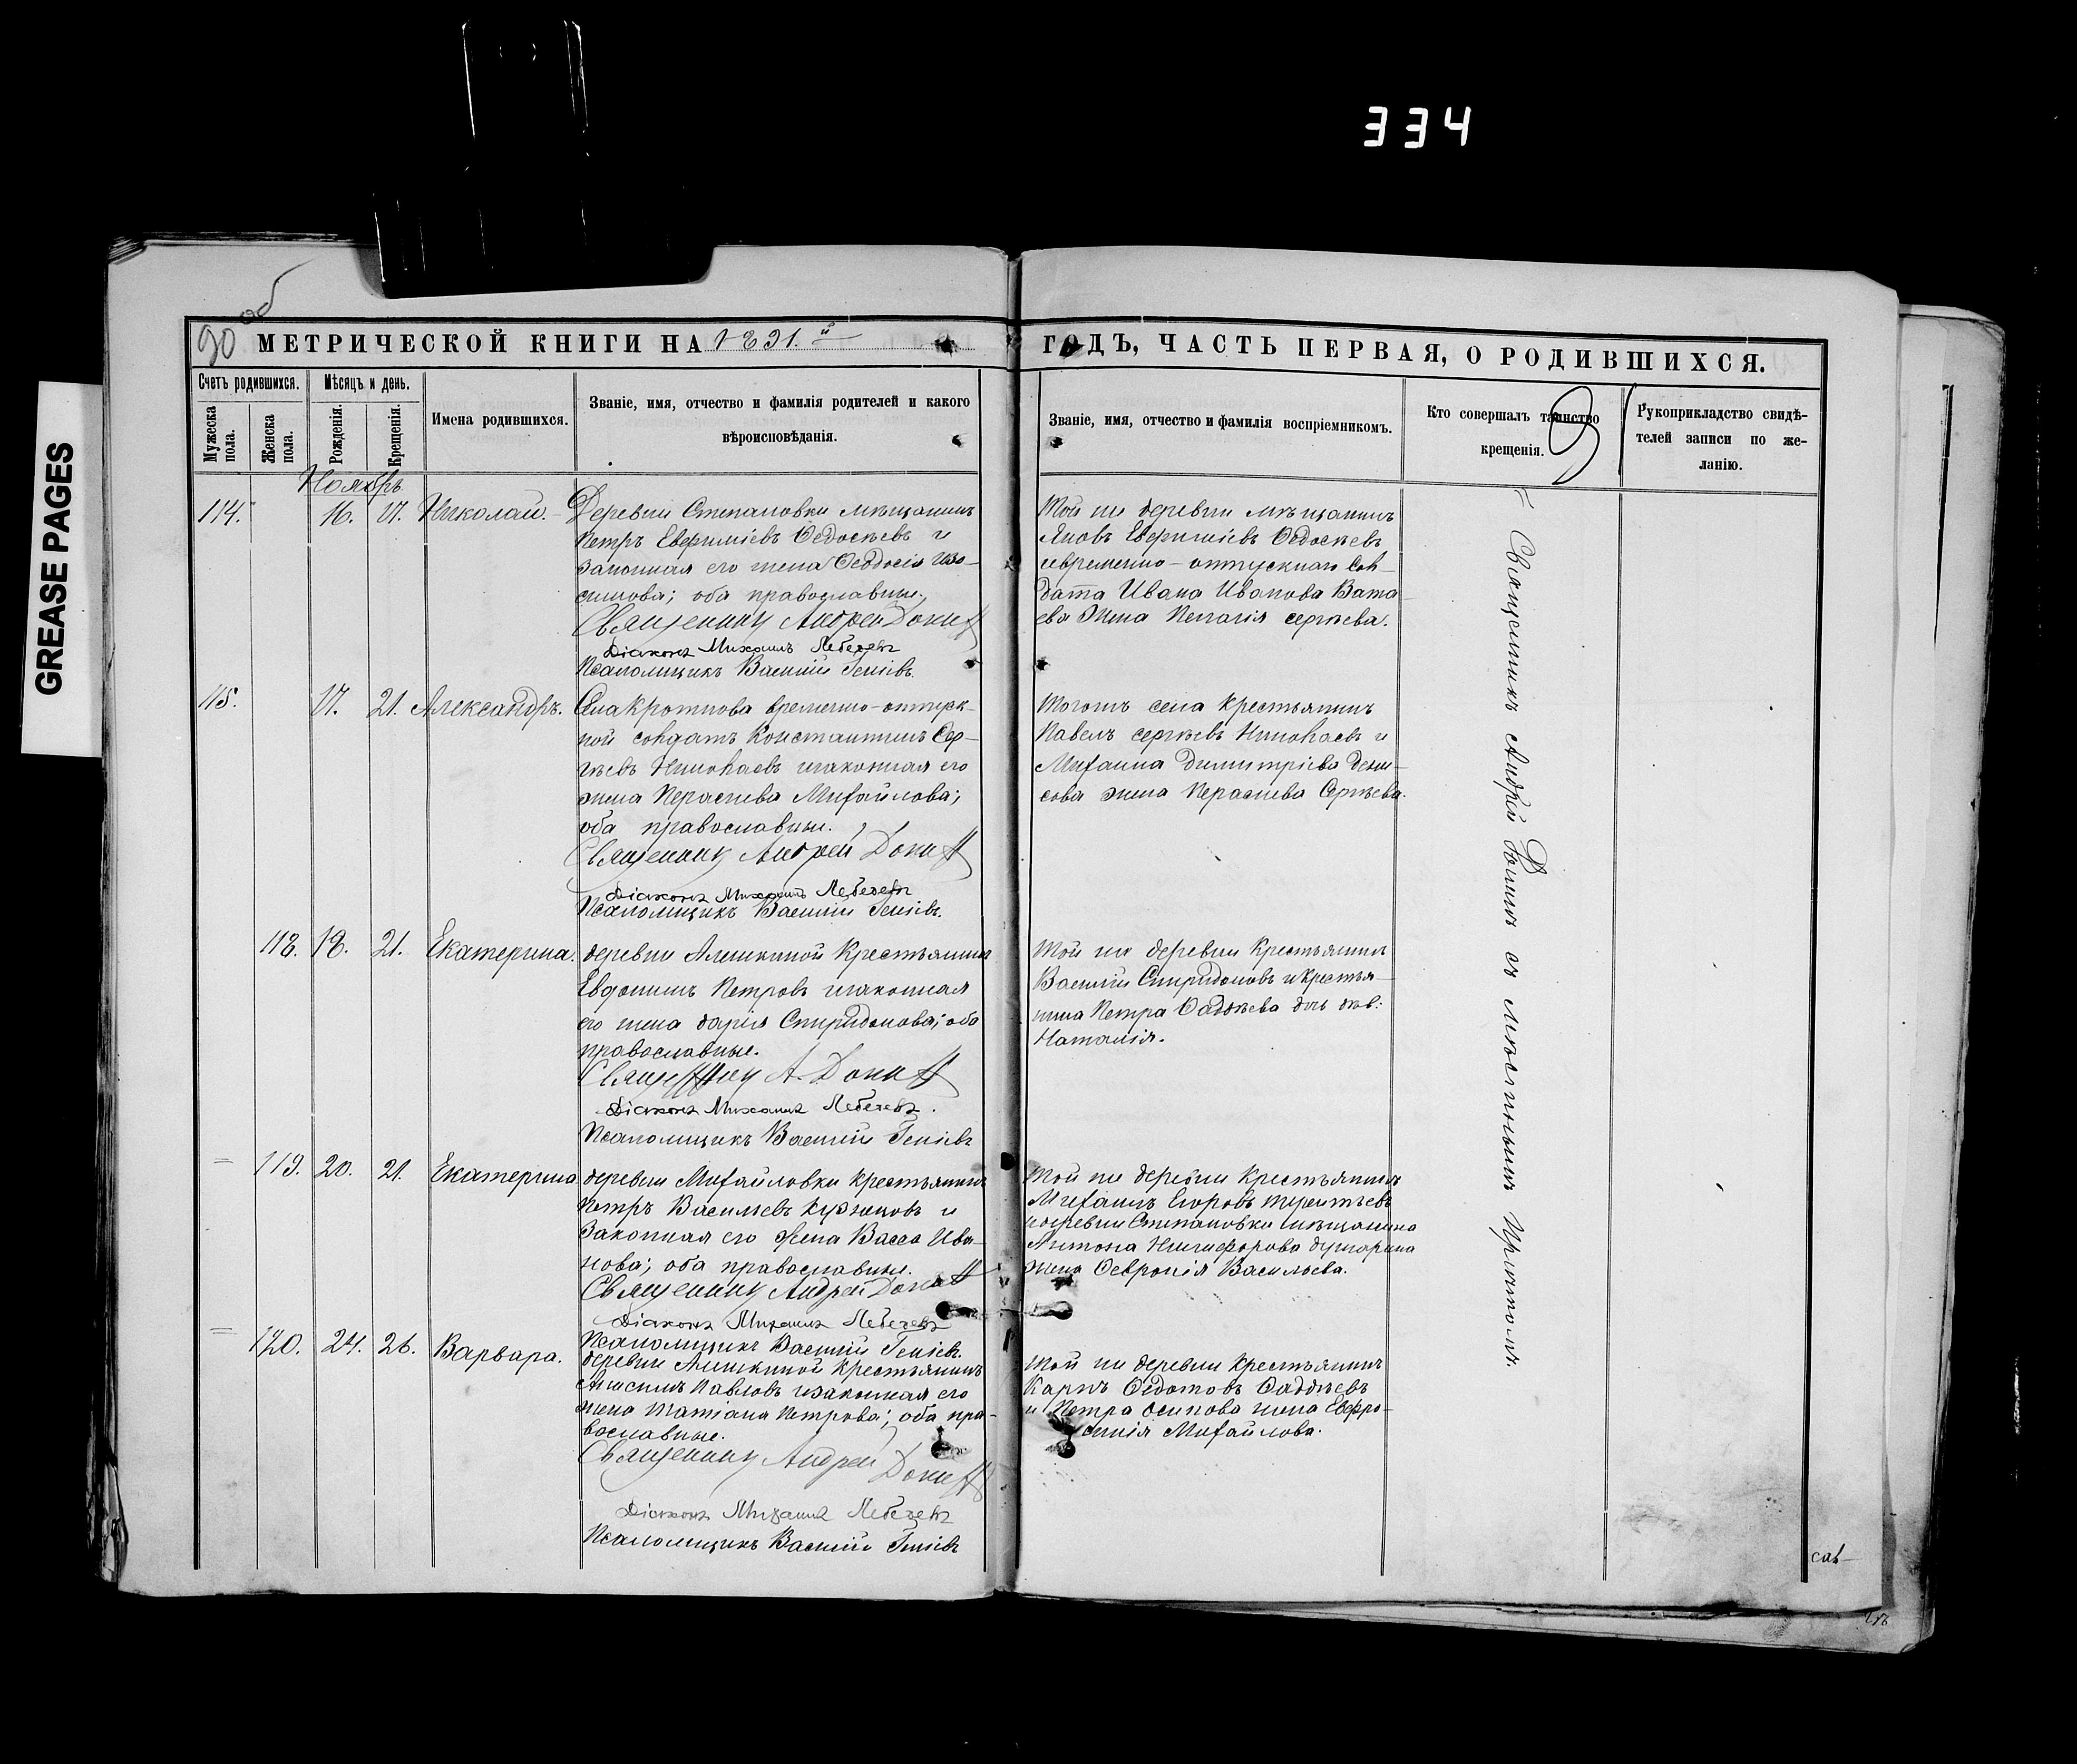 334
GREASE PAGES
90 об
МЕТРИЧЕСКОЙ КНИГИ НА 1891.й ГОДЪ, ЧАСТЬ ПЕРВАЯ, О РОДИВШИХСЯ.
Счетъ родившихся.
Мужеска пола.
Женска пола.
Мѣсяцъ и день.
Рожденія.
Крещенія.
Имена родившихся.
Званіе, имя, отчество и фамилія родителей и какого
вѣроисповѣданія.
Званіе, имя, отчество и фамилія воспріемниковъ.
Кто совершалъ таинство
крещенія.
Рукоприкладство свидѣ-
телей записи по же-
ланію.
Ноябрь
114. 16. 17. Николай.
Деревни Степановки мѣщанинъ
Петръ Евфиміевъ Ѳедосѣевъ и
законная его жена Ѳеодосія Изо-
симова; оба православны.
Священникъ Андрей Донинъ
Діаконъ Михаилъ Лебедевъ
Псаломщикъ Василій
Той же деревни мѣщанинъ
Яковъ Евфиміевъ Ѳедосѣевъ
и временно-отпускнаго сол-
дата Ивана Иванова Вата-
ева жена Пелагія Сергѣева.
115. 17. 21. Александръ.
Села Кроткова временно-отпуск-
ной солдатъ Константинъ Сер-
гѣевъ Николаевъ и законная его
жена Параскева Михайлова;
оба православны.
Священникъ Андрей Донинъ
Діаконъ Михаилъ Лебедевъ
Псаломщикъ Василій
Тогожъ села крестьянинъ
Павелъ Сергѣевъ Николаевъ и
Михаила Димитріева Дени-
сова жена Параскева Сергѣева.
118. 18. 21. Екатерина.
деревни Алешкиной крестьянинъ
Евдокимъ Петровъ и законная
его жена Дарія Спиридонова; оба
православные.
Священникъ А. Донинъ
Діаконъ Михаилъ Лебедевъ.
Псаломщикъ Василій
Той же деревни крестьянинъ
Василій Спиридоновъ и крестья-
нина Петра Ѳаддѣева дочь дѣв:
Наталія.
= 119. 20. 21. Екатерина
деревни Михайловки крестьянинъ
Петръ Васильевъ и
законная его жена Васса Ива-
нова; оба православны.
Священникъ Андрей Донинъ
Діаконъ Михаилъ Лебедевъ
Псаломщикъ Василій
Той же деревни крестьянинъ
Михаилъ Егоровъ Терентьевъ
и деревни Степановки мѣщанина
Антона Никифорова
жена Ѳевронія Васильева.
= 120. 24. 26. Варвара.
деревни Алешкиной крестьянинъ
Анисимъ Павловъ и законная его
жена Татіана Петрова; оба пра-
вославные.
Священникъ Андрей Донинъ
Діаконъ Михаилъ Лебедевъ
Псаломщикъ Василій
Той же деревни крестьянинъ
Карпъ Ѳедотовъ Ѳаддѣевъ
и Петра Осипова жена Евфро-
синія Михайлова.
Священникъ Андрей Донинъ съ мѣстнымъ причтомъ.